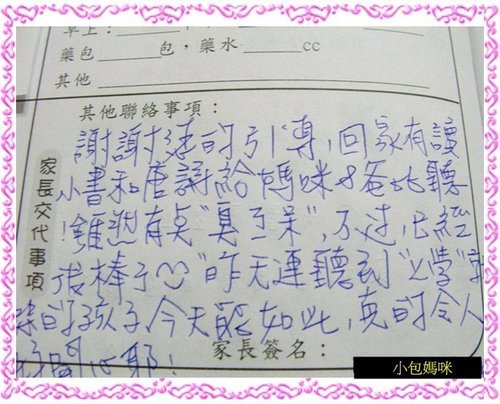 早上：
藥包 包，藥水 cc
其他
其他聯絡事項：
家長交代事項
謝謝您的引導，回家有讀
小書和唐詩給媽咪&爸比聽
！雖然有点"臭ㄋ呆"，不过，已經
很棒了 "昨天連聽到"上學"字
的孩子今天能如此，真的令人
開心耶！
家長簽名：
小包媽咪